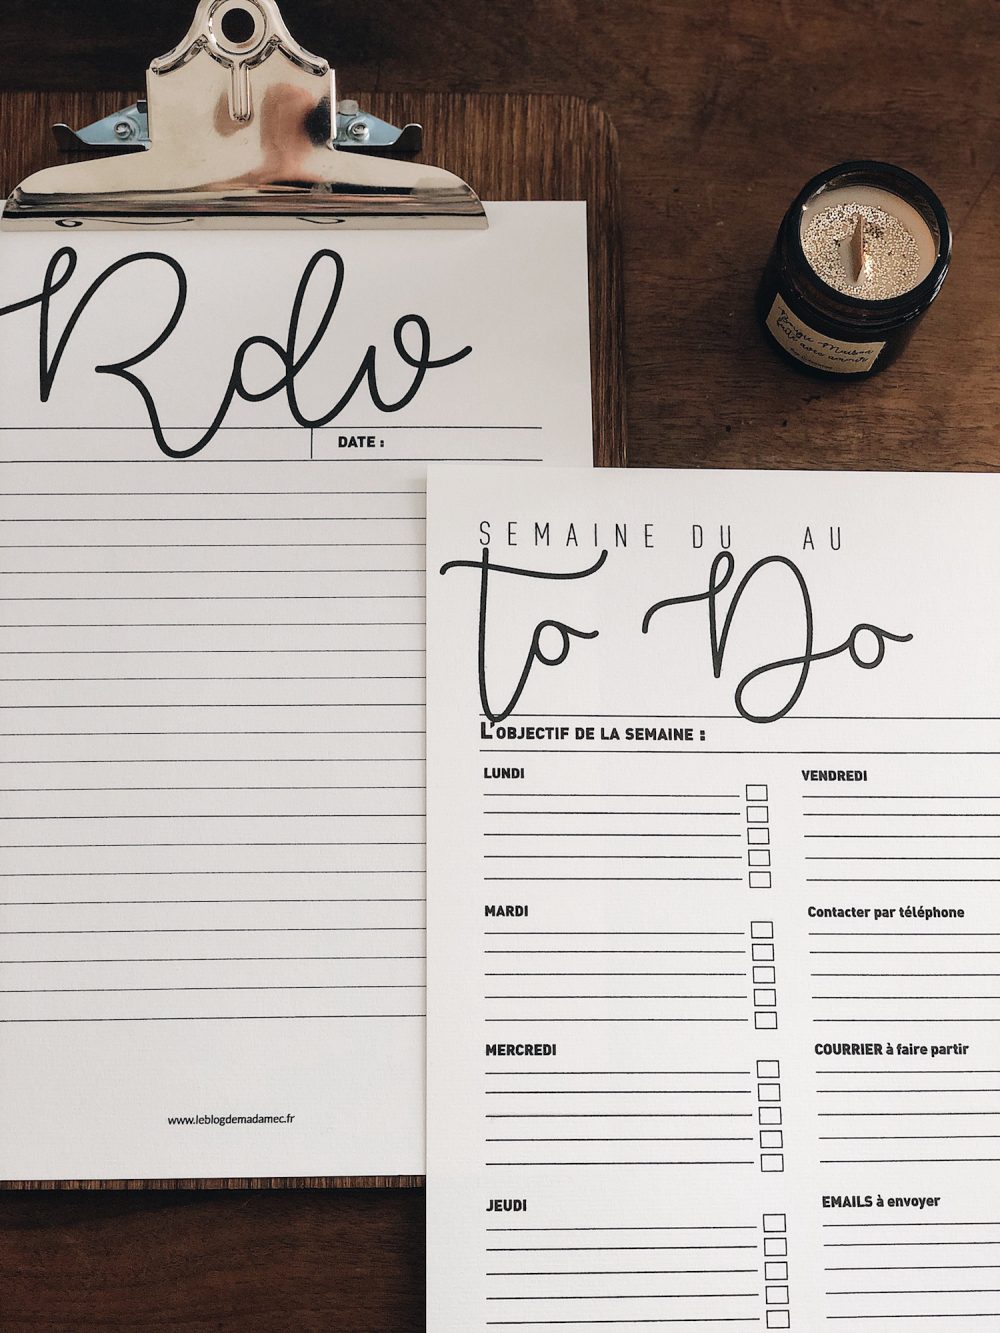 Rdv
DATE :
www.leblogdemadamec.fr
SEMAINE DU AU
To Do
L'OBJECTIF DE LA SEMAINE :
LUNDI
MARDI
MERCREDI
JEUDI
VENDREDI
Contacter par téléphone
COURRIER à faire partir
EMAILS à envoyer